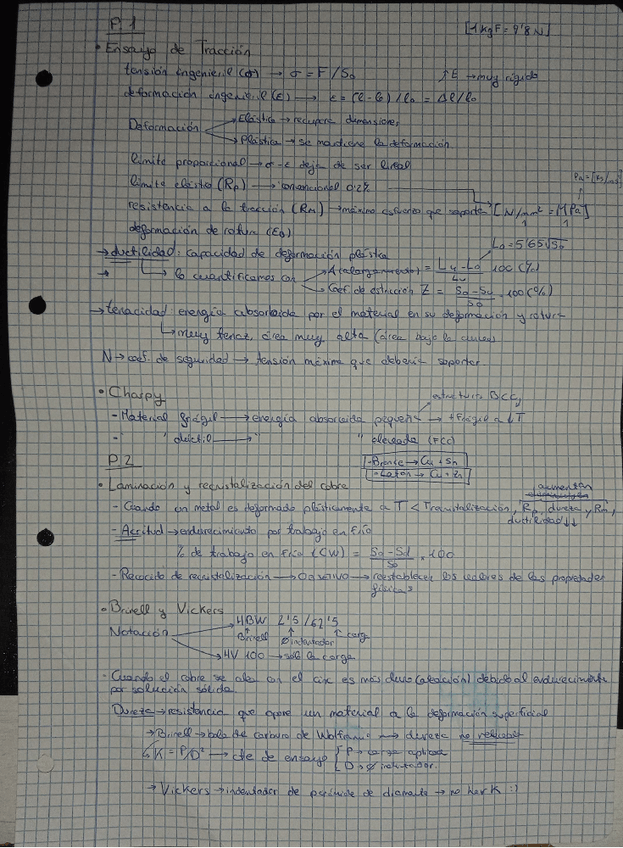 P.1
[1 kgF = 9'8 N]
• Ensayo de Tracción
tensión ingenieril (σ) → σ = F/S₀
↑E → muy rígido
deformación ingenieril (ε) → ε = (l-l₀)/l₀ = Δl/l₀
Deformación
Elástica → recupera dimensiones
Plástica → se mantiene la deformación
límite proporcional → σ-ε deja de ser lineal
límite elástico (Rp) → convencional 0.2%
resistencia a la tracción (Rm) → máximo esfuerzo que soporta [N/mm² = MPa]
deformación de rotura (E₀)
L₀ = 5'65√S₀
→ ductilidad: capacidad de deformación plástica
→ lo cuantificamos con
A (alargamiento) = Lu - L₀ / Lu · 100 (%)
Coef. de estricción Z = S₀ - Su / S₀ · 100 (%)
→ tenacidad energía absorbida por el material en su deformación y rotura
→ muy tenaz, área muy alta (área bajo la curva)
N → coef. de seguridad → tensión máxima que debería soportar
• Charpy
estructura BCC
- Material frágil → energía absorbida pequeña → +frágil a ↓T
- " dúctil → " " elevada (FCC)
P.2
- Bronce → Cu + Sn
- Latón → Cu + Zn
• Laminación y recristalización del cobre
aumentan
- Cuando un metal es deformado plásticamente a T < Trecristalización, Rp, dureza, Rm,
ductilidad ↓↓
- Acritud → endurecimiento por trabajo en frío
% de trabajo en frío (CW) = S₀ - Sd / S₀ · 100
- Recocido de recristalización → Objetivo → reestablecer los valores de las propiedades
físicas
• Brinell y Vickers
Notación
HBW 2'5/62'5
Brinell Ø indentador carga
HV 100 → solo la carga
- Cuando el cobre se alea con el cinc es más duro (aleación) debido al endurecimiento
por solución sólida
Dureza → resistencia que opone un material a la deformación superficial
→ Brinell → bola de carburo de Wolframio → dureza no
K = P/D² → cte de ensayo
P → carga aplicada
D → Ø indentador
→ Vickers → indentador de pirámide de diamante → no hay K :)